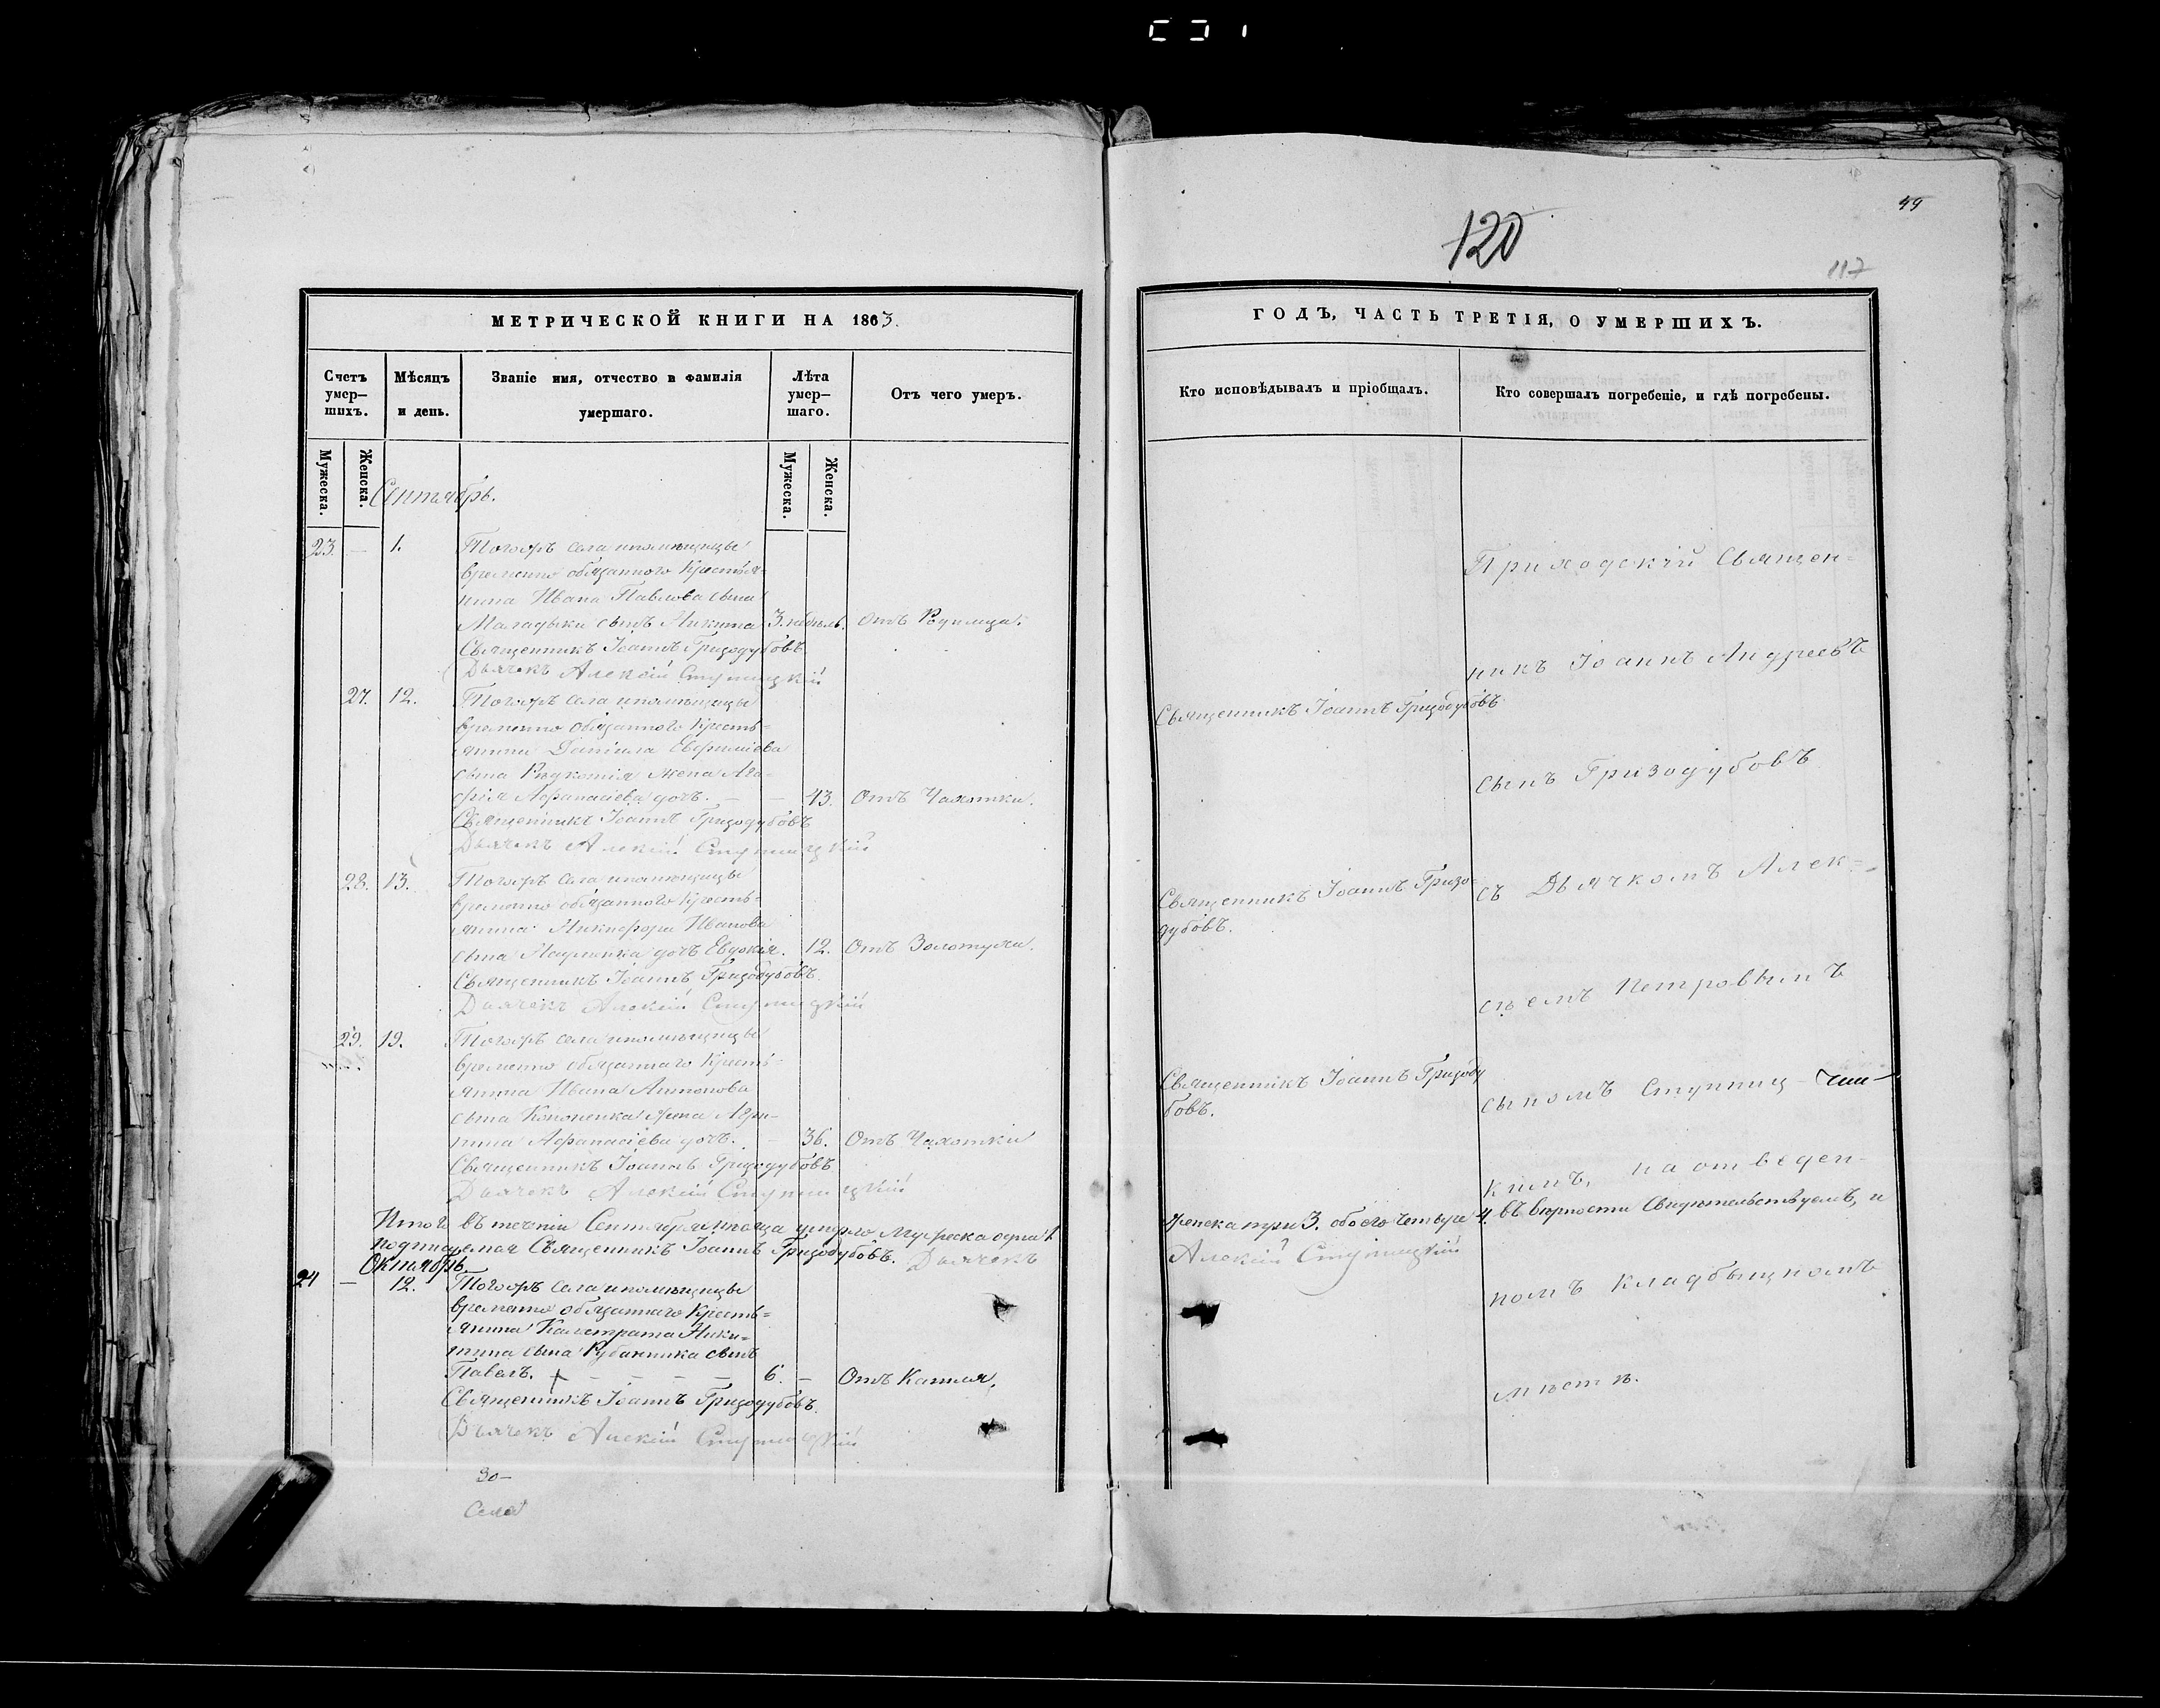 120
49
117
МЕТРИЧЕСКОЙ КНИГИ НА 1863.
Счетъ умер—шихъ.
Мѣсяцъ и день.
Званіе имя, отчество и фамилія умершаго.
Лѣта умер—шаго.
Отъ чего умеръ.
Мужеска.
Женска.
Мужеска.
Женска.
Сентябрь.
23. — 1. Тогожъ села и помѣщицы
временно обязанного Крестья=
нина Ивана Павлова сына
сынъ Никита 3. недѣль. Отъ Родимца.
Священникъ Іоаннъ Гризодубовъ
Дьячекъ Алексій Ступницкій
27. 12. Тогожъ села и помѣщицы
временно обязанного Кресть=
янина Даніила Евфиміева
сына жена Ага=
фія Афанасіева дочь. — — 43. Отъ Чахотки.
Священникъ Іоаннъ Гризодубовъ
Дьячекъ Алексій Ступницкій
28. 13. Тогожъ села и помѣщицы
временно обязанного Кресть=
янина Никифора Иванова
сына дочь Евдокія. 12. Отъ Золотухи.
Священникъ Іоаннъ Гризодубовъ.
Дьячекъ Алексій Ступницкій
29. 19. Тогожъ села и помѣщицы
временно обязаннаго Кресть=
янина Ивана Антонова
сына Кононенка жена Агри-
пина Афанасіева дочь. — 36. Отъ Чахотки
Священникъ Іоаннъ Гризодубовъ
Дьячекъ Алексій Ступницкій
Итого въ теченіи Сентября мѣсяца умерло Мужеска одинъ 1
подписуемся Священникъ Іоаннъ Гризодубовъ. Дьячекъ
Октябрь
24 — 12. Тогожъ села и помѣщицы
временно обязаннаго Кресть=
янина Калистрата Ники=
тина сына сынъ
Павелъ. — — — — 6. — Отъ Кашля.
Священникъ Іоаннъ Гризодубовъ.
Дьячекъ Алексій Ступницкій
30—
Села
ГОДЪ, ЧАСТЬ ТРЕТІЯ, О УМЕРШИХЪ.
Кто исповѣдывалъ и пріобщалъ.
Кто совершалъ погребеніе, и гдѣ погребены.
Священникъ Іоаннъ Гризодубовъ
Священникъ Іоаннъ Гризо-
дубовъ.
Священникъ Іоаннъ Гризоду
бовъ.
женска три 3. обоего четыре 4. въ вѣрности Свидѣтельствуемъ, и
Алексій Ступницкій
Приходскій Священ=
никъ Іоаннъ Андреевъ
сынъ Гризодубовъ
съ Дьячкомъ Алек=
сѣемъ Петровымъ
сыномъ Ступниц-
кимъ, на отведен-
номъ кладбищномъ
мѣстѣ.